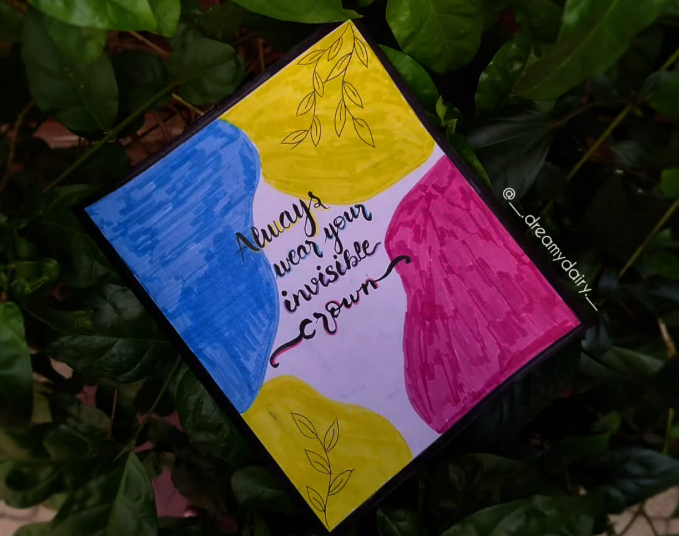 Always
wear your
invisible
crown
@__.dreamydairy.__